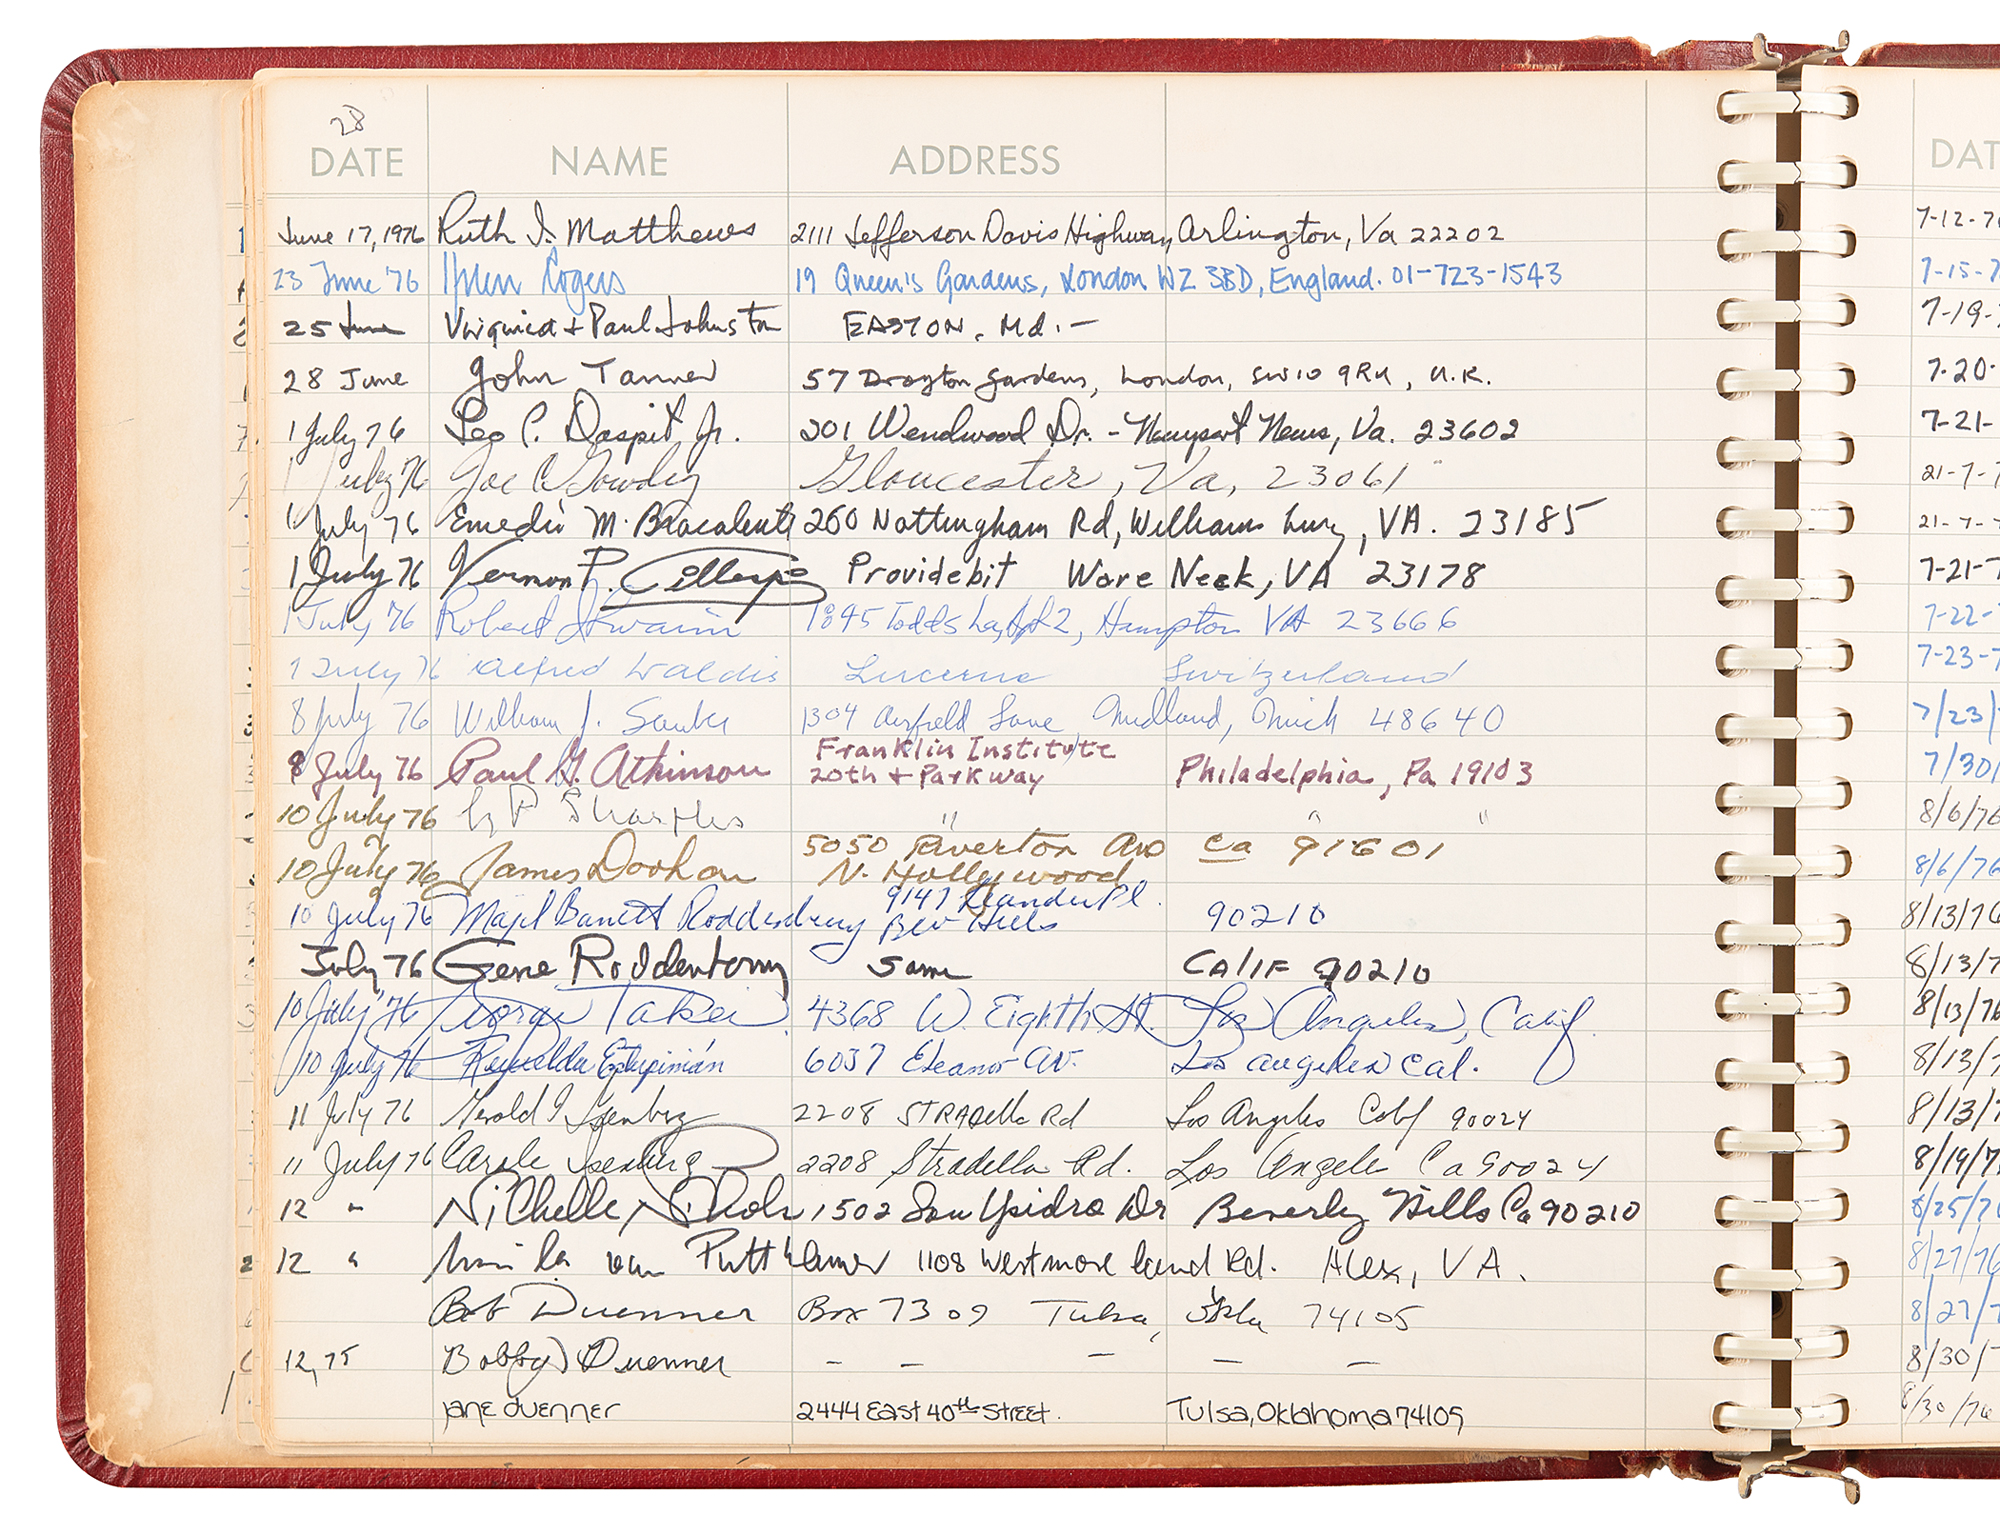 28
DATE NAME ADDRESS
June 17, 1976 Ruth I. Matthews 2111 Jefferson Davis Highway, Arlington, Va 22202
23 June '76 Rogers 19 Queen's Gardens, London W2 3BD, England. 01-723-1543
25 June + Paul Johnston EASTON, Md. —
28 June John Tanner 57 Drayton Gardens, London, SW10 9RU, U.K.
1 July 76 Leo C. Daspit Jr. 301 Wendwood Dr. - Newport News, Va. 23602
1 July 76 Joe C Gowdey Gloucester, Va, 23061
1 July 76 Emedio M. Bracalente 260 Nottingham Rd, Williamsburg, VA. 23185
1 July 76 Vernon P. Gillespie Providebit Ware Neck, VA 23178
1 July 76 Robert Swain 1845 Todds La, Apt 2, Hampton VA 23666
7 July 76 Alfred Waldis Lucerne Switzerland
8 July 76 William J. 1304 Airfield Lane Midland, Mich 48640
8 July 76 Paul G. Atkinson Franklin Institute
20th + Parkway Philadelphia, Pa 19103
10 July 76 Sharples " " "
10 July 76 James Doohan 5050 Riverton Ave Ca 91601
N. Hollywood
10 July 76 Majel Barrett Roddenberry 9147 Leander Pl.
Bev Hills 90210
July 76 Gene Roddenberry Same CALIF 90210
10 July '76 George Takei 4368 W. Eighth St. Los Angeles, Calif.
10 July 76 Reynaldo Estupinián 6037 Eleanor Av. Los Angeles Cal.
11 July 76 Gerold I Isenberg 2208 STRADella Rd Los Angeles Calif 90024
11 July 76 Carole Isenberg 2208 Stradella Rd. Los Angeles Ca 90024
12 " Nichelle Nichols 1502 San Ysidro Dr Beverly Hills Ca 90210
12 " van Puttkamer 1108 Westmoreland Rd. Alex, VA.
Bob Duenner Box 7309 Tulsa, Okla 74105
12, 75 Bobby Duenner — — — — —
Jane Duenner 2444 East 40th Street. Tulsa, Oklahoma 74105
DAT
7-12-7
7-15-7
7-19-
7-20-
7-21-
21-7-7
21-7-7
7-21-7
7-22-
7-23-7
7/23/
7/30/
8/6/76
8/6/76
8/13/76
8/13/7
8/13/76
8/13/7
8/13/7
8/19/7
8/25/7
8/27/76
8/27/7
8/30/7
8/30/76